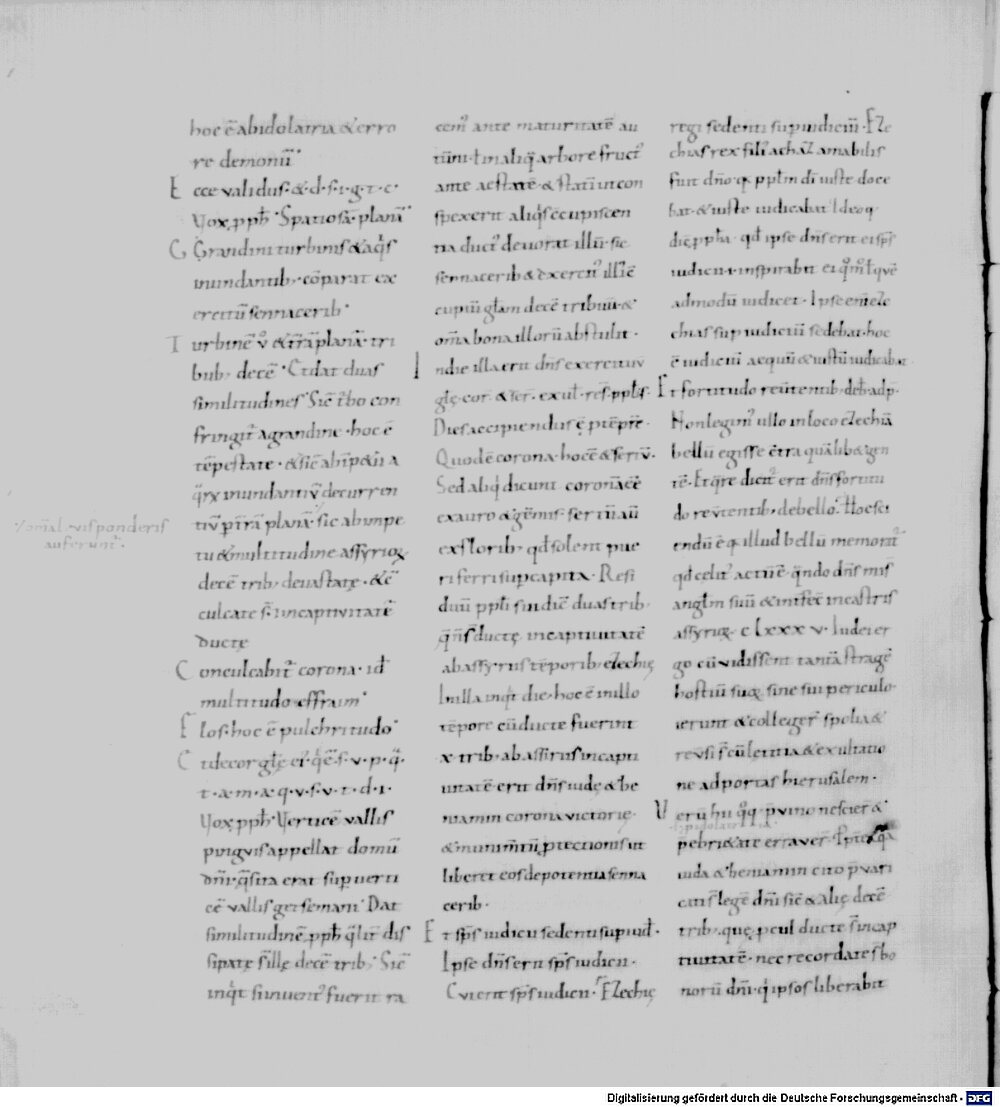 hoc ē abidolatria & erro
re demonū
Ecce validus · & · d · f · i · g · t · c ·
Vox pph̄ · Spatiosā · planā
Grandini turbinis & aq̄s
inundantib; cōparat ex
ercitū sennacerib ·
Turbinē v̊ & t̄rā planā · tri
bub; decē · Et dat duas
similitudines · Sic̄ t̄bo con
fringit̄ a grandine · hoc ē
tēpestate · & sic̄
inundantiū decurren
tiū p t̄rā planā · sic ab impe
tu & multitudine assyrioꝝ
decē trib; deuastatę · & c̄
culcate s̄ · in captivitatē
ductę
Conculcabit̄ corona · id̄
multitudo effraim ·
Flos · hoc ē pulchritudo ·
Et decor glę̄ ei᾽ · q̄ ē · s · v · p · q̄ ·
t · a · m · a · q · v · s · v · t · d · i ·
Vox pph̄ · Verticē vallis
pinguis appellat domū
dn̄i · q̄ sita erat sup verti
cē vallis gersemani · Dat
similitudinē pph̄ q̄lit̄ dis
sipatę s̄ illę decē trib; · Sic̄
inq̄t si inuent᾽ fuerit ra
Vox mal · vi sponderis
auferunt᾽ ·
cem᾽ ante maturitatē au
tūni · ł in aliq̄ arbore fruct᾽
ante aestatē & statī ut con
spexerit aliq̄s c̄cupiscen
tia duct᾽ deuorat illū · sic
sennacerib & exercit᾽ illi᾽ c̄
cupiuī głam decē tribuū · &
om̄a bona illorū abstulit ·
In die illa erit dn̄s exercituū
glę · cor · & ser · exult · res · ppłi s ·
Dies accipiendus ē p tēpr̄e ·
Quod ē corona · hoc ē & sertū ·
Sed aliq̄ dicunt coronā ēē
ex auro & gēmis · sertū aū
ex florib; qd̄ solent pue
ri ferri sup capita · Resi
duū ppłi s̄ iudic̄ duas trib;
q̄ n̄ s̄ ductę in captiuitatē
ab assyriis tēporib; ezechię
In illa inq̄t die · hoc ē in illo
tēpore cū ductę fuerint
x · trib; ab assiriis in capti
uitatē erit dn̄s iudę & be
niamin corona victorię ·
& munim̄tū p̄tectionis ut
liberet eos de potentia senna
cerib ·
Et sp̄s iudicii sedenti sup iud̄ ·
Ipse dn̄s erit sp̄s iudicii ·
Cui erit sp̄s iudicii · Ezechię
regi sedenti sup iudiciū · Eze
chias rex fili᾽ achaz amabilis
fuit dn̄o · q pp̄łm dī iuste doce
bat · & iuste iudicabat · Ideo q
dic̄ pph̄a · qd̄ ipse dn̄s erit ei sp̄s
iudicii · i · inspirabit ei
admodū iudicet · Ipse enī eze
chias sup iudiciū sedebat · hoc
ē iudiciū aequū & iustū iudicabat
Et fortitudo reūtentib; deb̄ · ad p̄ ·
Non legim᾽ ullo in loco ezechiā
bellū egisse c̄tra quālib& gen
tē · Et q̄re dicit᾽ erit dn̄s fortitu
do reūtentib; de bello · Hoc sci
endū ē q illud bellū memorat᾽
qd̄ celit᾽ actū ē · q̄ndo dn̄s mis᾽
angłm suū & int̄fec̄ in castris
assyrioꝝ clxxxv · Iudei er
go cū vidissent tantā stragē
hostiū suoꝝ sine sui periculo
ierunt & colleger̄ spolia &
reūsi s̄ cū lętitia & exultatio
ne ad portas hierusalem ·
Verū hii q̄q; p̄ vino nescier̄ &
p̄ ebrietate erraver̄ · Ipse
iuda & beniamin cito p̄vari
cati s̄ legē dn̄i sic̄ & alię decē
trib; · quę p̄cul ducte s̄ in cap
tiuitatē · nec recordate s̄ bo
norū dn̄i · q ipsos liberabit
Digitalisierung gefördert durch die Deutsche Forschungsgemeinschaft - DFG